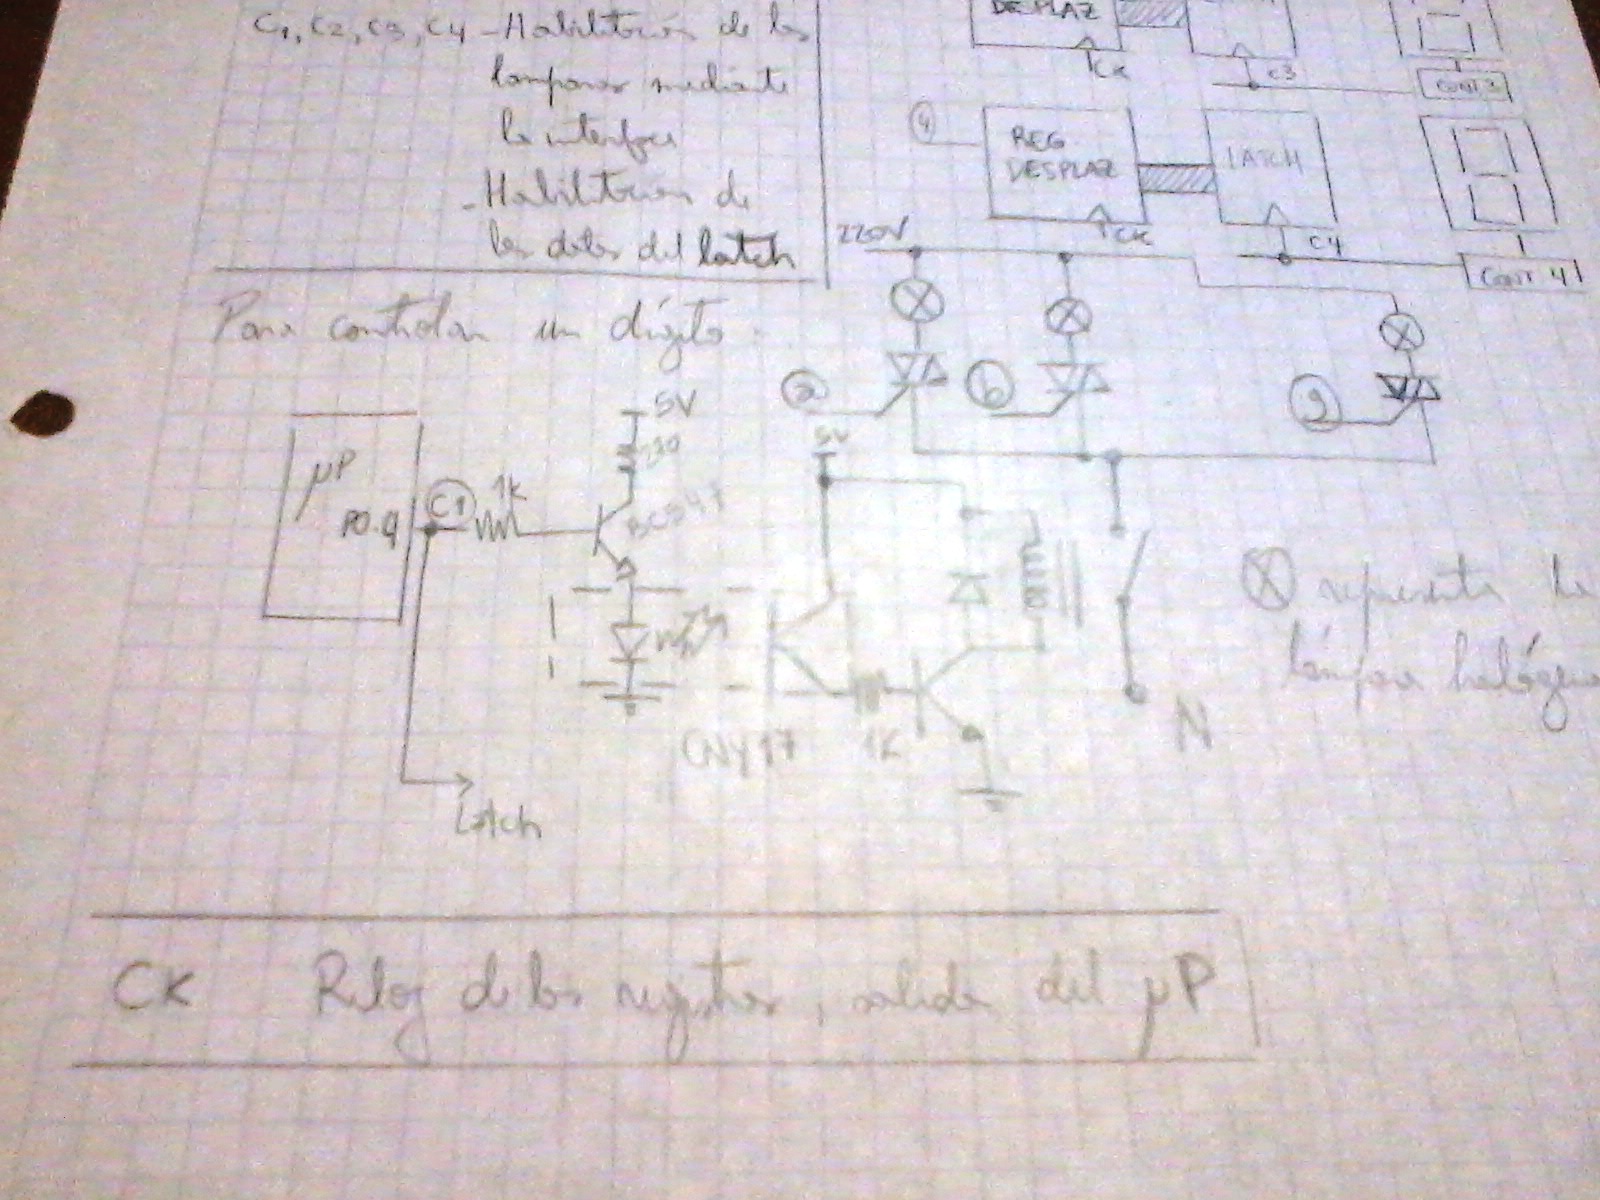 C1, C2, C3, C4 - Habilitación de las
lámparas mediante
la interfaz
- Habilitación de
los datos del latch
DESPLAZ
CK
C3
Cont 3
4
REG.
DESPLAZ
LATCH
CK
C4
Cont 4
220V
Para controlar un dígito:
a
b
g
5V
230
BC547
μP
P0.9
C1
1K
5V
CNY17
1K
N
Latch
representa la
lámpara halógena
CK Reloj de los registros, salida del μP